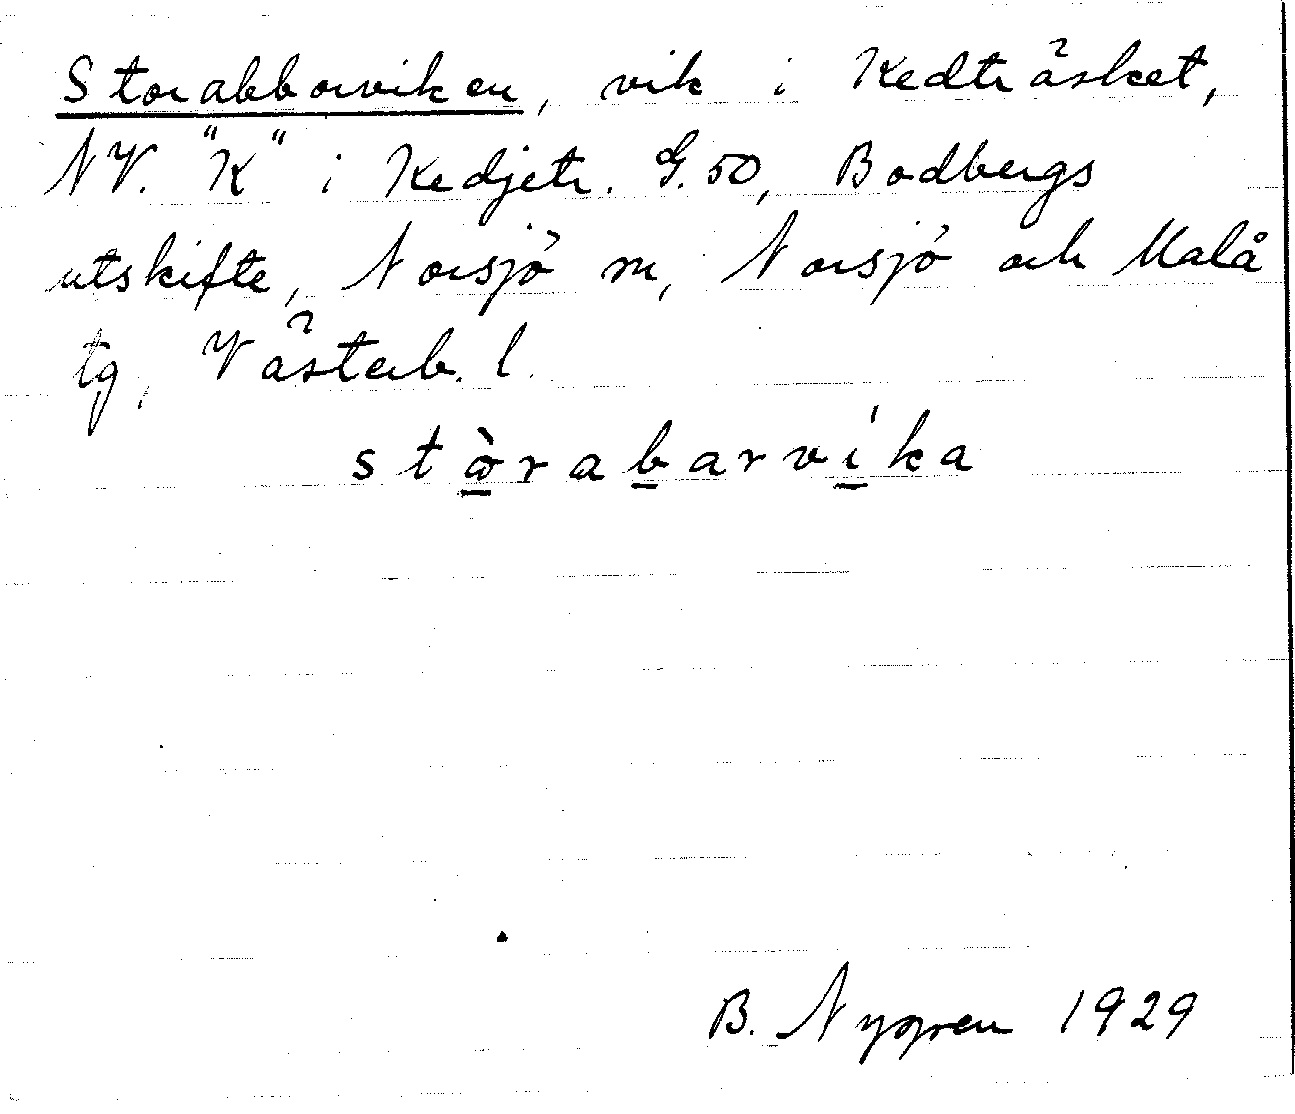 Storabborviken, vik i Kedträsket,
NV. "K" i Kedjetr. G.50, Bodbergs
utskifte, Norsjö sn, Norsjö och Malå
tg, Västerb. l.
stòrabarvíka
B. Nygren 1929